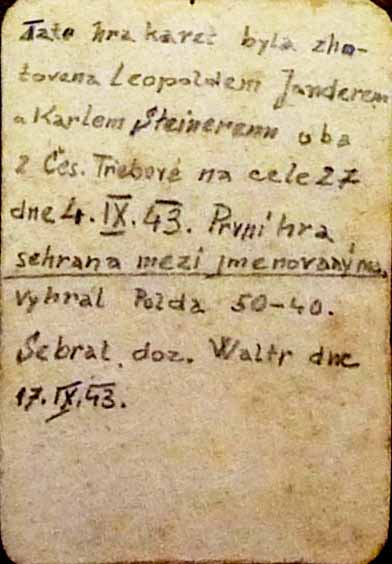 Tato hra karet byla zho-
tovena Leopoldem Janderem
a Karlem Steinerem oba
z Čes. Třebové na cele 27
dne 4. IX. 43. První hra
sehrana mezi jmenovaným
vyhrál Polda 50-40.
Sebral doz. Waltr dne
17. IX. 43.